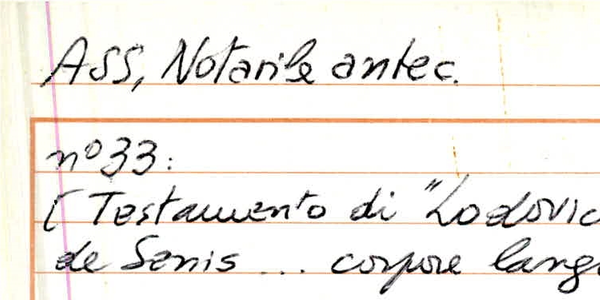 ASS, Notarile antec.
n° 33:
[Testamento di "Lodovic
de Senis ... corpore langu